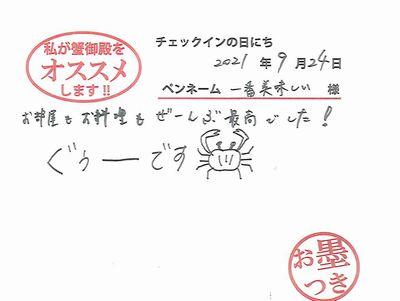 私が蟹御殿を
オススメ
します!!
チェックインの日にち
2021 年 9 月 24 日
ペンネーム 一番美味しい 様
お部屋もお料理もぜーんぶ最高でした!
ぐぅーです
お墨
つき